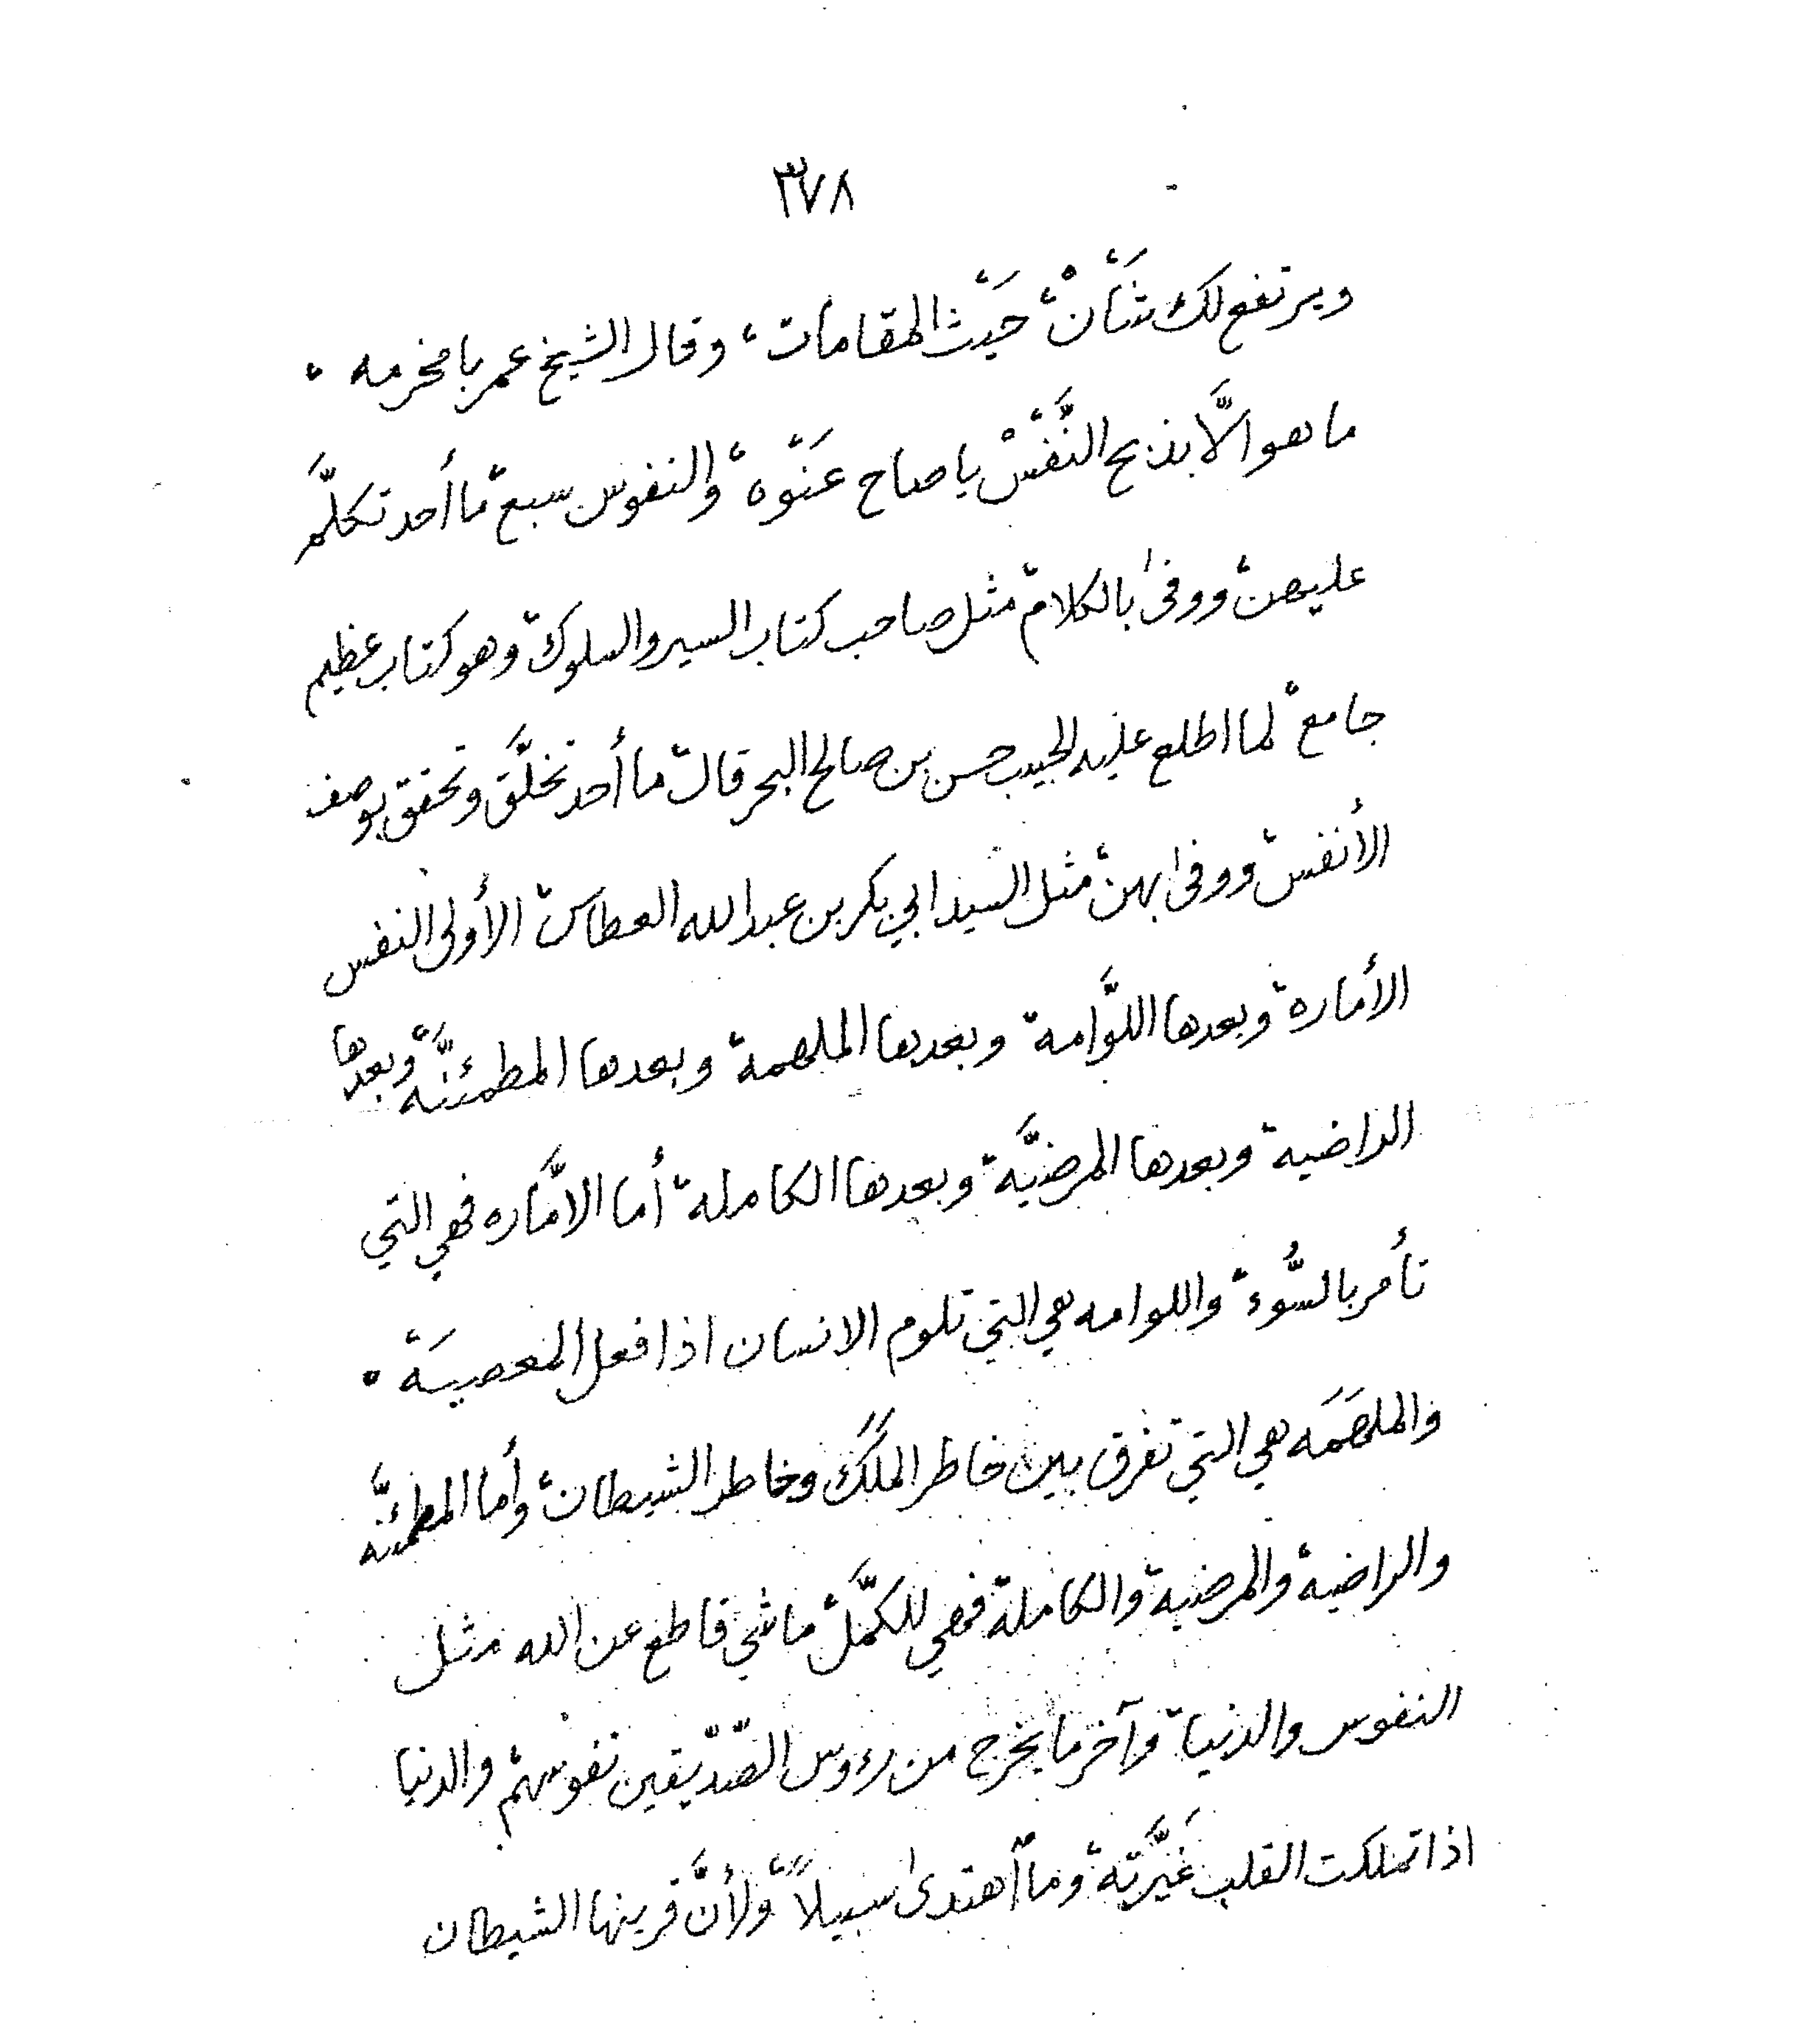 ٣٧٨
ويرتفع لك شَأنْ، حَيْث المقامات، وقال الشيخ عمر بامخرمه ،
ما هو الَّا بذبح النَّفْسْ يا صاح عَنْوه، والنفوس سبع، ما أحد تكلَّم
عليهن، ووفىٰ بالكلام، مثل صاحب كتاب السير والسلوك، وهو كتاب عظيم
جامع، لما اطلع عليه الحبيب حسن بن صالح البحر قال، ما أحد تخلَّق وتحقق بوصف
الأنفس، ووفىٰ بهن، مثل السيد ابي بكر بن عبد الله العطاس، الأولى النفس
الأماره، وبعدها اللوَّامة، وبعدها الملهمة، وبعدها المطمئنَّه، وبعدها
الراضية، وبعدها المرضيَّة، وبعدها الكاملة، أما الامَّاره فهي التي
تأمر بالسُّوء، واللوامه هي التي تلوم الانسان اذا فعل المعصيَة ،
والملهَمَه هي التي تفرق بين خاطر الملَك وخاطر الشيطان، وأما المطمئنَّه
والراضية، والمرضية، والكاملة، فهي للكمَّل، ما شي قاطع عن الله مثل
النفوس والدنيا، وآخر ما يخرج من رءوس الصّدّيقين نفوسهم، والدنيا
اذا تملكت القلب غَيَّرته، وما اهتدىٰ سبيلاً، ولأنَّ قرينها الشيطان